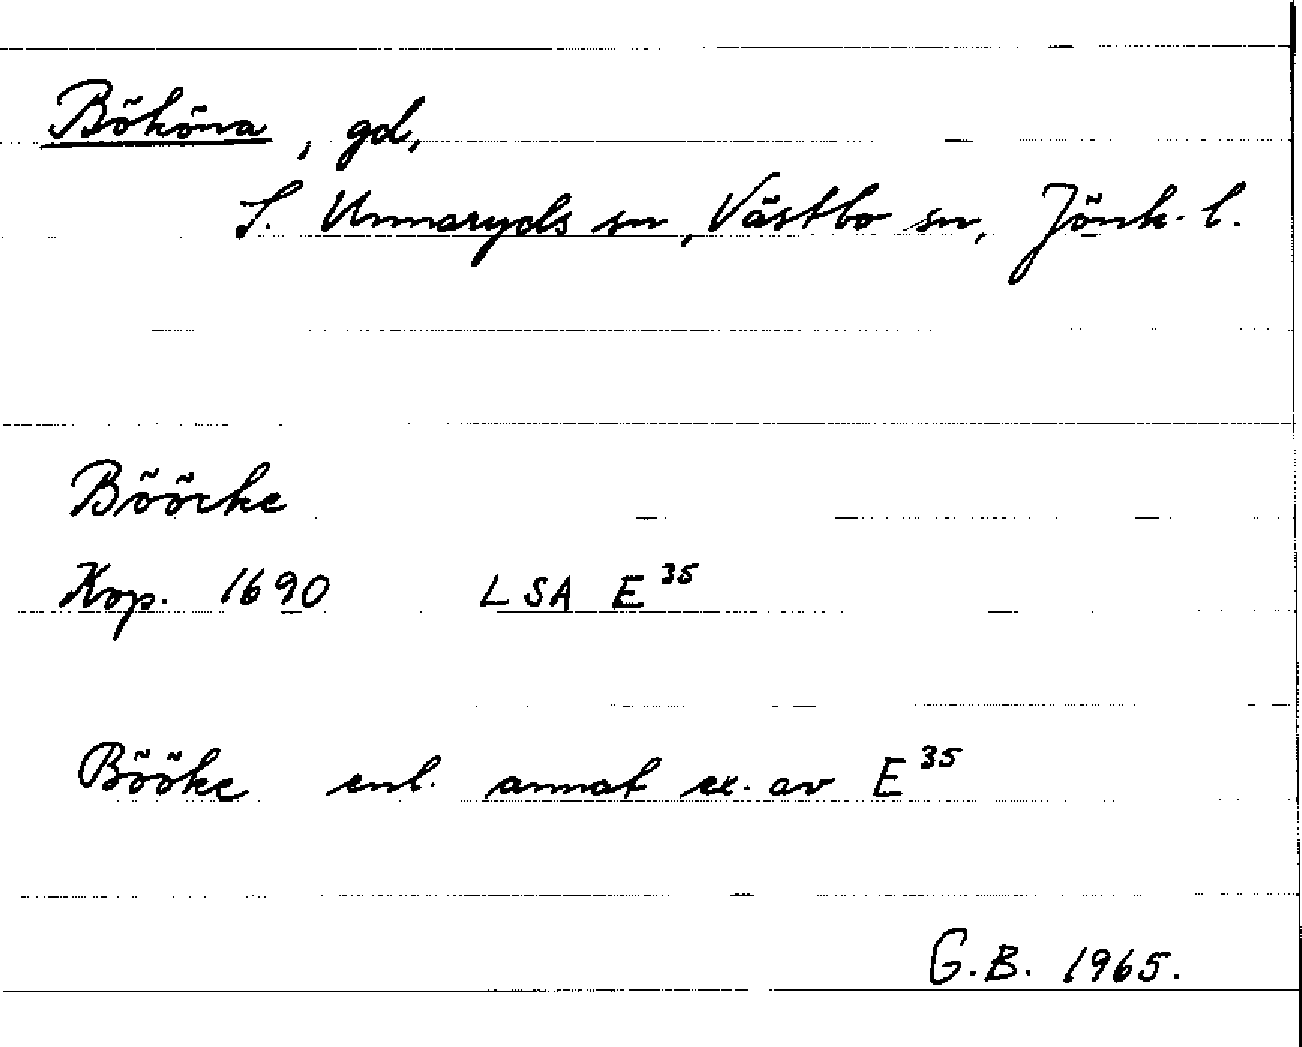 Bököna, gd,
S. Unnaryds sn, Västbo sn, Jönk. l.
Bööcke
Kop. 1690 LSA E³⁵
Bööke enl. annat ex. av E³⁵
G.B. 1965.